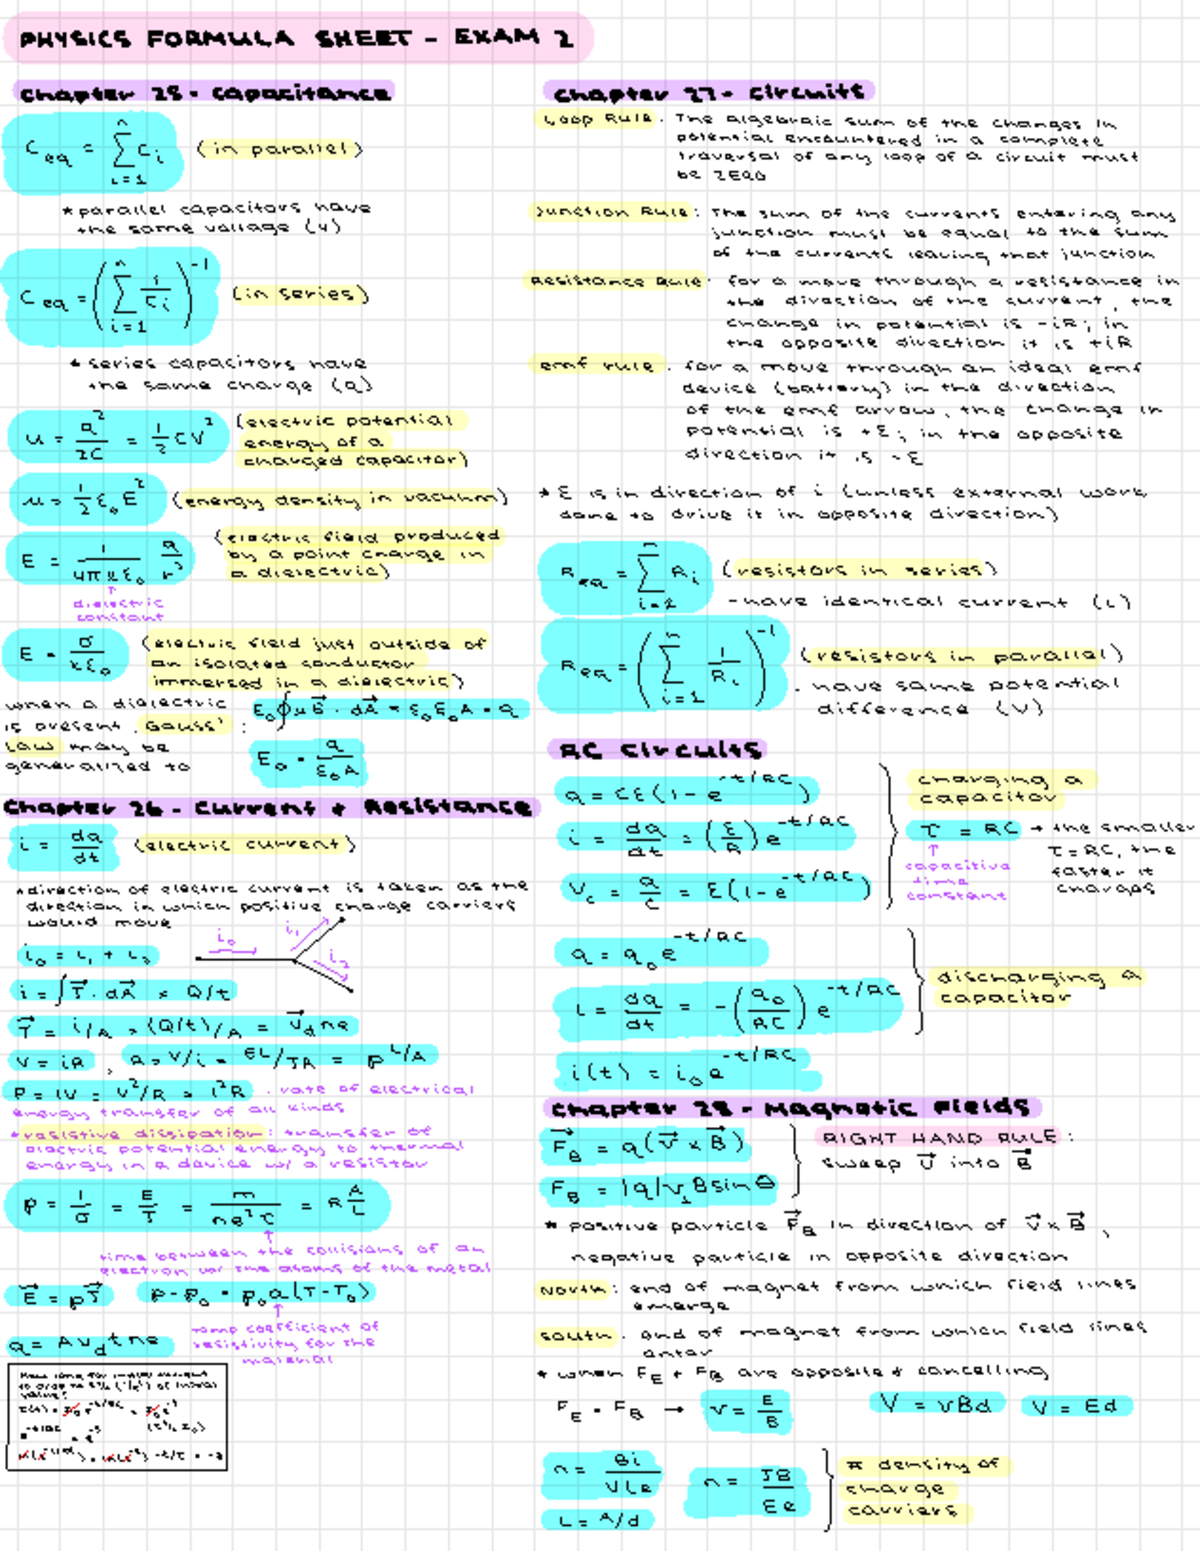 PHYSICS FORMULA SHEET - EXAM 2
Chapter 25 - Capacitance
C_eq = Σ_{i=1}^{n} C_i (in parallel)
* parallel capacitors have
the same voltage (V)
C_eq = (Σ_{i=1}^{n} 1/C_i)^{-1} (in series)
* series capacitors have
the same charge (Q)
u = q²/2C = ½CV² (electric potential
energy of a
charged capacitor)
u = ½ε₀E² (energy density in vacuum)
E = 1/4πκε₀ q/r² (electric field produced
by a point charge in
a dielectric)
↑
dielectric
constant
E = σ/κε₀ (electric field just outside of
an isolated conductor
immersed in a dielectric)
when a dielectric
is present, Gauss' :
law may be
generalized to
E₀ = q/ε₀A
Chapter 26 - Current + Resistance
i = dq/dt (electric current)
* direction of electric current is taken as the
direction in which positive charge carriers
would move
i₀ = i₁ + i₂
i₀ i₁ i₂
i = ∫J⃗ · dA⃗ = Q/t
J⃗ = i/A = (Q/t)/A = v⃗_d ne
V = iR, R = V/i = EL/JA = ρL/A
P = iV = V²/R = i²R - rate of electrical
energy transfer of all kinds
* resistive dissipation: transfer of
electric potential energy to thermal
energy in a device w/ a resistor
ρ = 1/σ = E/J = m/ne²τ = R A/L
↑
time between the collisions of an
electron w/ the atoms of the metal
E⃗ = ρJ⃗ ρ-ρ₀ = ρ₀α(T-T₀)
↑
temp coefficient of
resistivity for the
material
q = Av_d t ne
Chapter 27 - Circuits
Loop Rule: The algebraic sum of the changes in
potential encountered in a complete
traversal of any loop of a circuit must
be ZERO
Junction Rule: The sum of the currents entering any
junction must be equal to the sum
of the currents leaving that junction
Resistance Rule: for a move through a resistance in
the direction of the current, the
change in potential is -iR; in
the opposite direction it is +iR
emf rule: for a move through an ideal emf
device (battery) in the direction
of the emf arrow, the change in
potential is +ε; in the opposite
direction it is -ε
* ε is in direction of i (unless external work
done to drive it in opposite direction)
R_eq = Σ R_i (resistors in series)
- have identical current (i)
R_eq = (Σ_{i=1}^{n} 1/R_i)^{-1} (resistors in parallel)
- have same potential
difference (V)
RC Circuits
q = Cε(1-e^{-t/RC})
i = dq/dt = (ε/R)e^{-t/RC}
V_c = q/C = ε(1-e^{-t/RC})
charging a
capacitor
τ = RC → the smaller
τ=RC, the
faster it
charges
↑
capacitive
time
constant
q = q₀e^{-t/RC}
i = dq/dt = -(q₀/RC)e^{-t/RC}
discharging a
capacitor
i(t) = i₀e^{-t/RC}
Chapter 28 - Magnetic Fields
F⃗_B = q(v⃗ × B⃗)
F_B = |q|v⊥Bsinθ
RIGHT HAND RULE:
sweep v⃗ into B⃗
* positive particle F⃗_B in direction of v⃗ × B⃗,
negative particle in opposite direction
North: end of magnet from which field lines
emerge
South: end of magnet from which field lines
enter
* when F_E + F_B are opposite + cancelling
F_E = F_B → v = E/B V = vBd V = Ed
n = Bi/Vle n = JB/Ee
l = A/d
# density of
charge
carriers